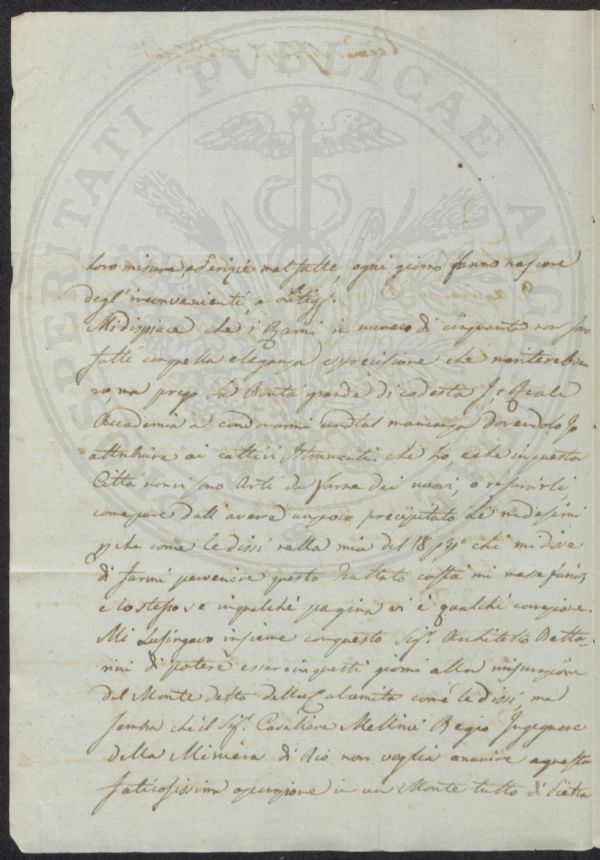 PROSPERITATI PVBLICAE AVGENDAE
loro misurade derigie mal fatte ogni giorno fanno nascere
degl' inconvenienti e litigj.
Mi dispiace che i Rami in numero di cinquanta non sono
fatti con quella eleganza e precisione che meriterebbe
ro, ma prego la Bontà grande di codesta I. e Reale
Accademia a condonarmi una tal mancanza dovendolo Io
attribuire ai cattivi Istrumenti che ho, e che in questa
Città non vi sono Arti da farne dei nuovi, o rifarirli
come pure dall' avere un poco precipitato i medesimi
che come le dissi nella mia del 18 che mi dice
di farmi pervenire questo Trattato costà mi
e lo stesso se in qualche pagina vi è qualche correzione.
Mi Lusingavo insieme con questo Sig.r Architetto Betta-
rini di potere essere in questi giorni alla misurazione
del Monte detto della Calamita come le dissi, ma
sembra che il Sig.r Cavaliere Mellini Regio Ingegnere
della Miniera di Rio non voglia annuire a questa
faticosissima operazione in un Monte tutto di Pietra